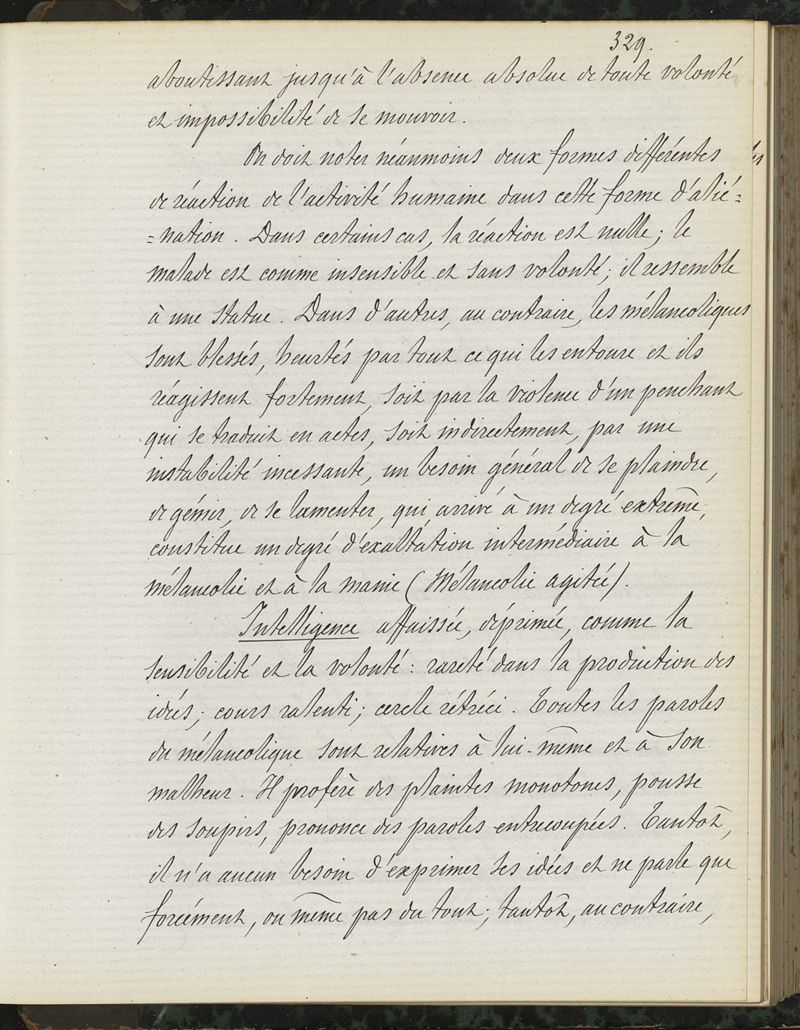 329.
aboutissant jusqu'à l'absence absolue de toute volonté
et impossibilité de se mouvoir.
On doit noter néanmoins deux formes différentes
de réaction de l'activité humaine dans cette forme d'alié=
=nation. Dans certains cas, la réaction est nulle; le
malade est comme insensible et sans volonté; il ressemble
à une statue. Dans d'autres, au contraire, les mélancoliques
sont blessés, heurtés par tout ce qui les entoure et ils
réagissent fortement, soit par la violence d'un penchant
qui se traduit en actes, soit indirectement, par une
instabilité incessante, un besoin général de se plaindre,
de gémir, de se lamenter, qui arrivé à un degré extrême,
constitue un degré d'exaltation intermédiaire à la
mélancolie et à la manie (Mélancolie agitée).
Intelligence affaissée, déprimée, comme la
sensibilité et la volonté: rareté dans la production des
idées; cours ralenti; cercle rétréci. Toutes les paroles
du mélancolique sont relatives à lui-même et à son
malheur. Il profère des plaintes monotones, pousse
des soupirs, prononce des paroles entrecoupées. Tantôt,
il n'a aucun besoin d'exprimer ses idées et ne parle que
forcément, ou même pas du tout; tantôt, au contraire,